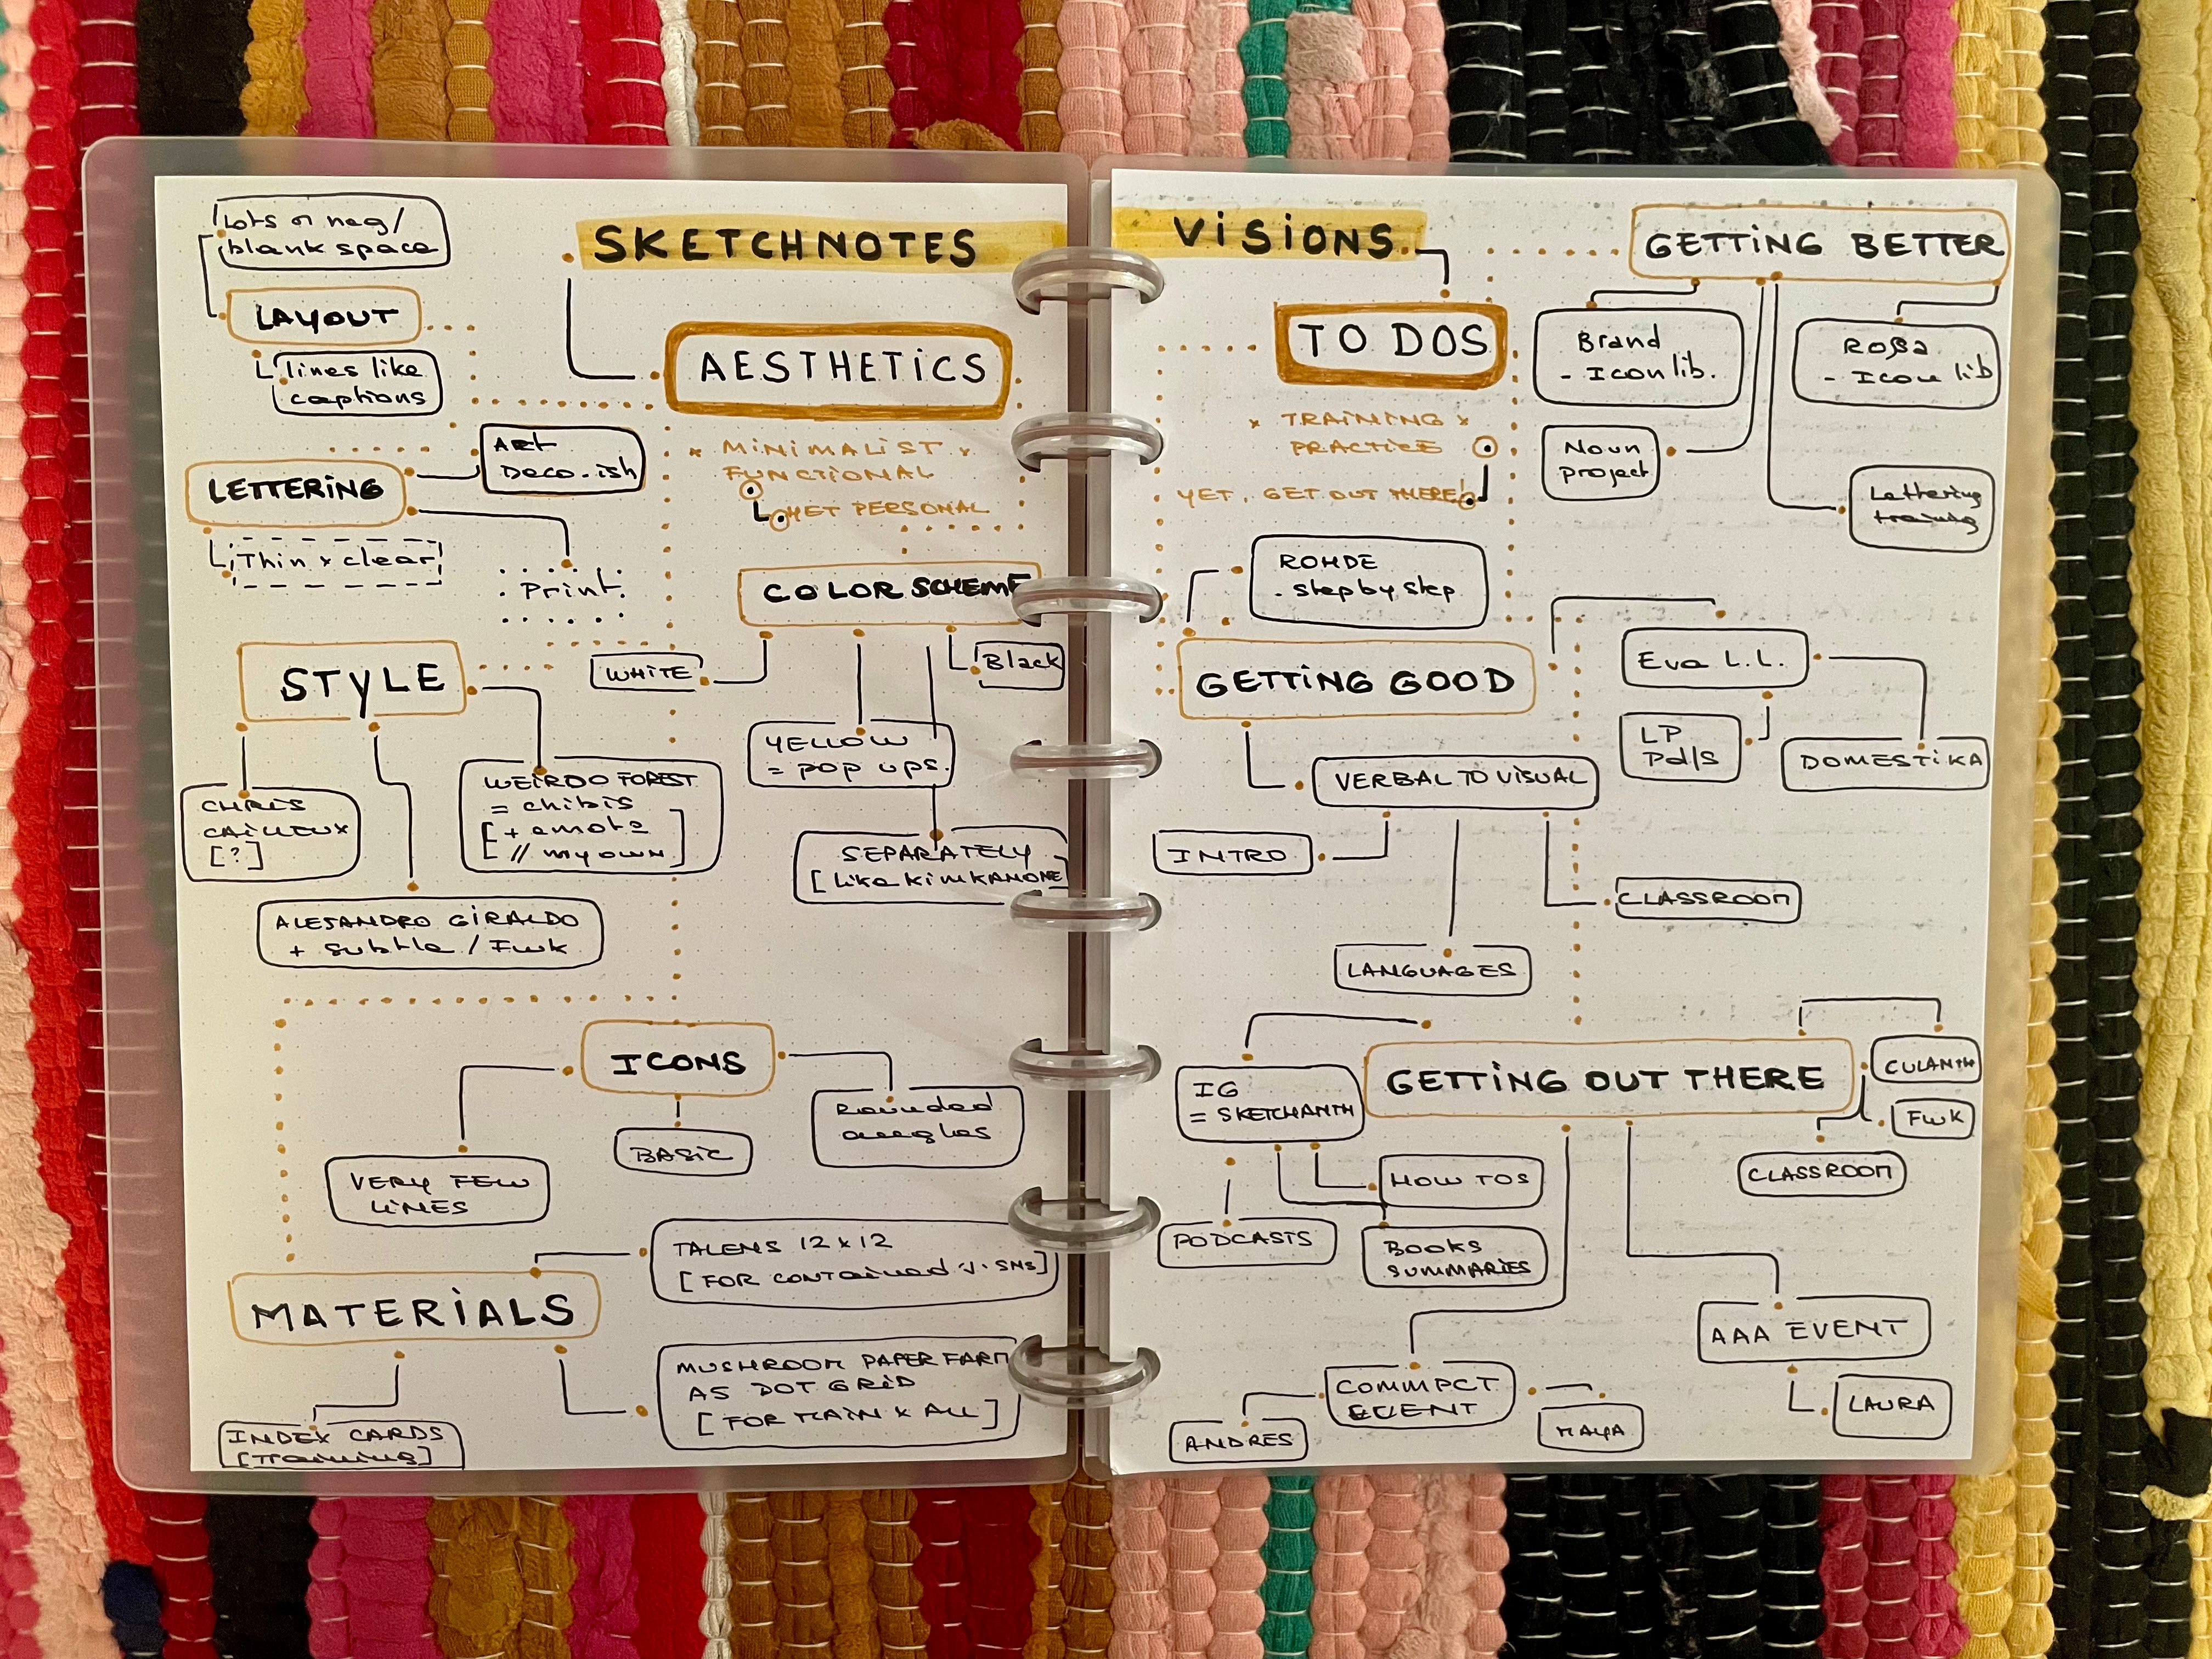 SKETCHNOTES
Lots of neg/
blank space
LAYOUT
lines like
captions
AESTHETICS
MINIMALIST
FUNCTIONAL
YET PERSONAL
ART
Deco-ish
LETTERING
Thin & clear
Print
COLOR SCHEME
WHITE
Black
YELLOW
= pop ups.
SEPARATELY
STYLE
CHRIS
CAILLEUX
[?]
WEIRDO FOREST
= chibis
// my own
ALEJANDRO GIRALDO
+ subtle / Fwk
ICONS
VERY FEW
LINES
BASIC
Rounded
angles
MATERIALS
TALENS 12 x 12
[FOR CONTAINED
MUSHROOM PAPER FARM
AS DOT GRID
[FOR MAIN & ALL]
INDEX CARDS
[Training]
VISIONS
TO DOS
x TRAINING x
PRACTICE
YET, GET OUT THERE!
GETTING BETTER
Brand
- Icon lib.
- Icon lib
Noun
project
Lettering
training
ROHDE
- step by step
GETTING GOOD
Eva L.L.
LP
DOMESTIKA
VERBAL TO VISUAL
INTRO
LANGUAGES
CLASSROOM
GETTING OUT THERE
IG
= SKETCHANTH
CULANTH
FWK
CLASSROOM
HOW TOS
PODCASTS
BOOKS
SUMMARIES
AAA EVENT
LAURA
COMMPCT
EVENT
ANDRES
MAYA